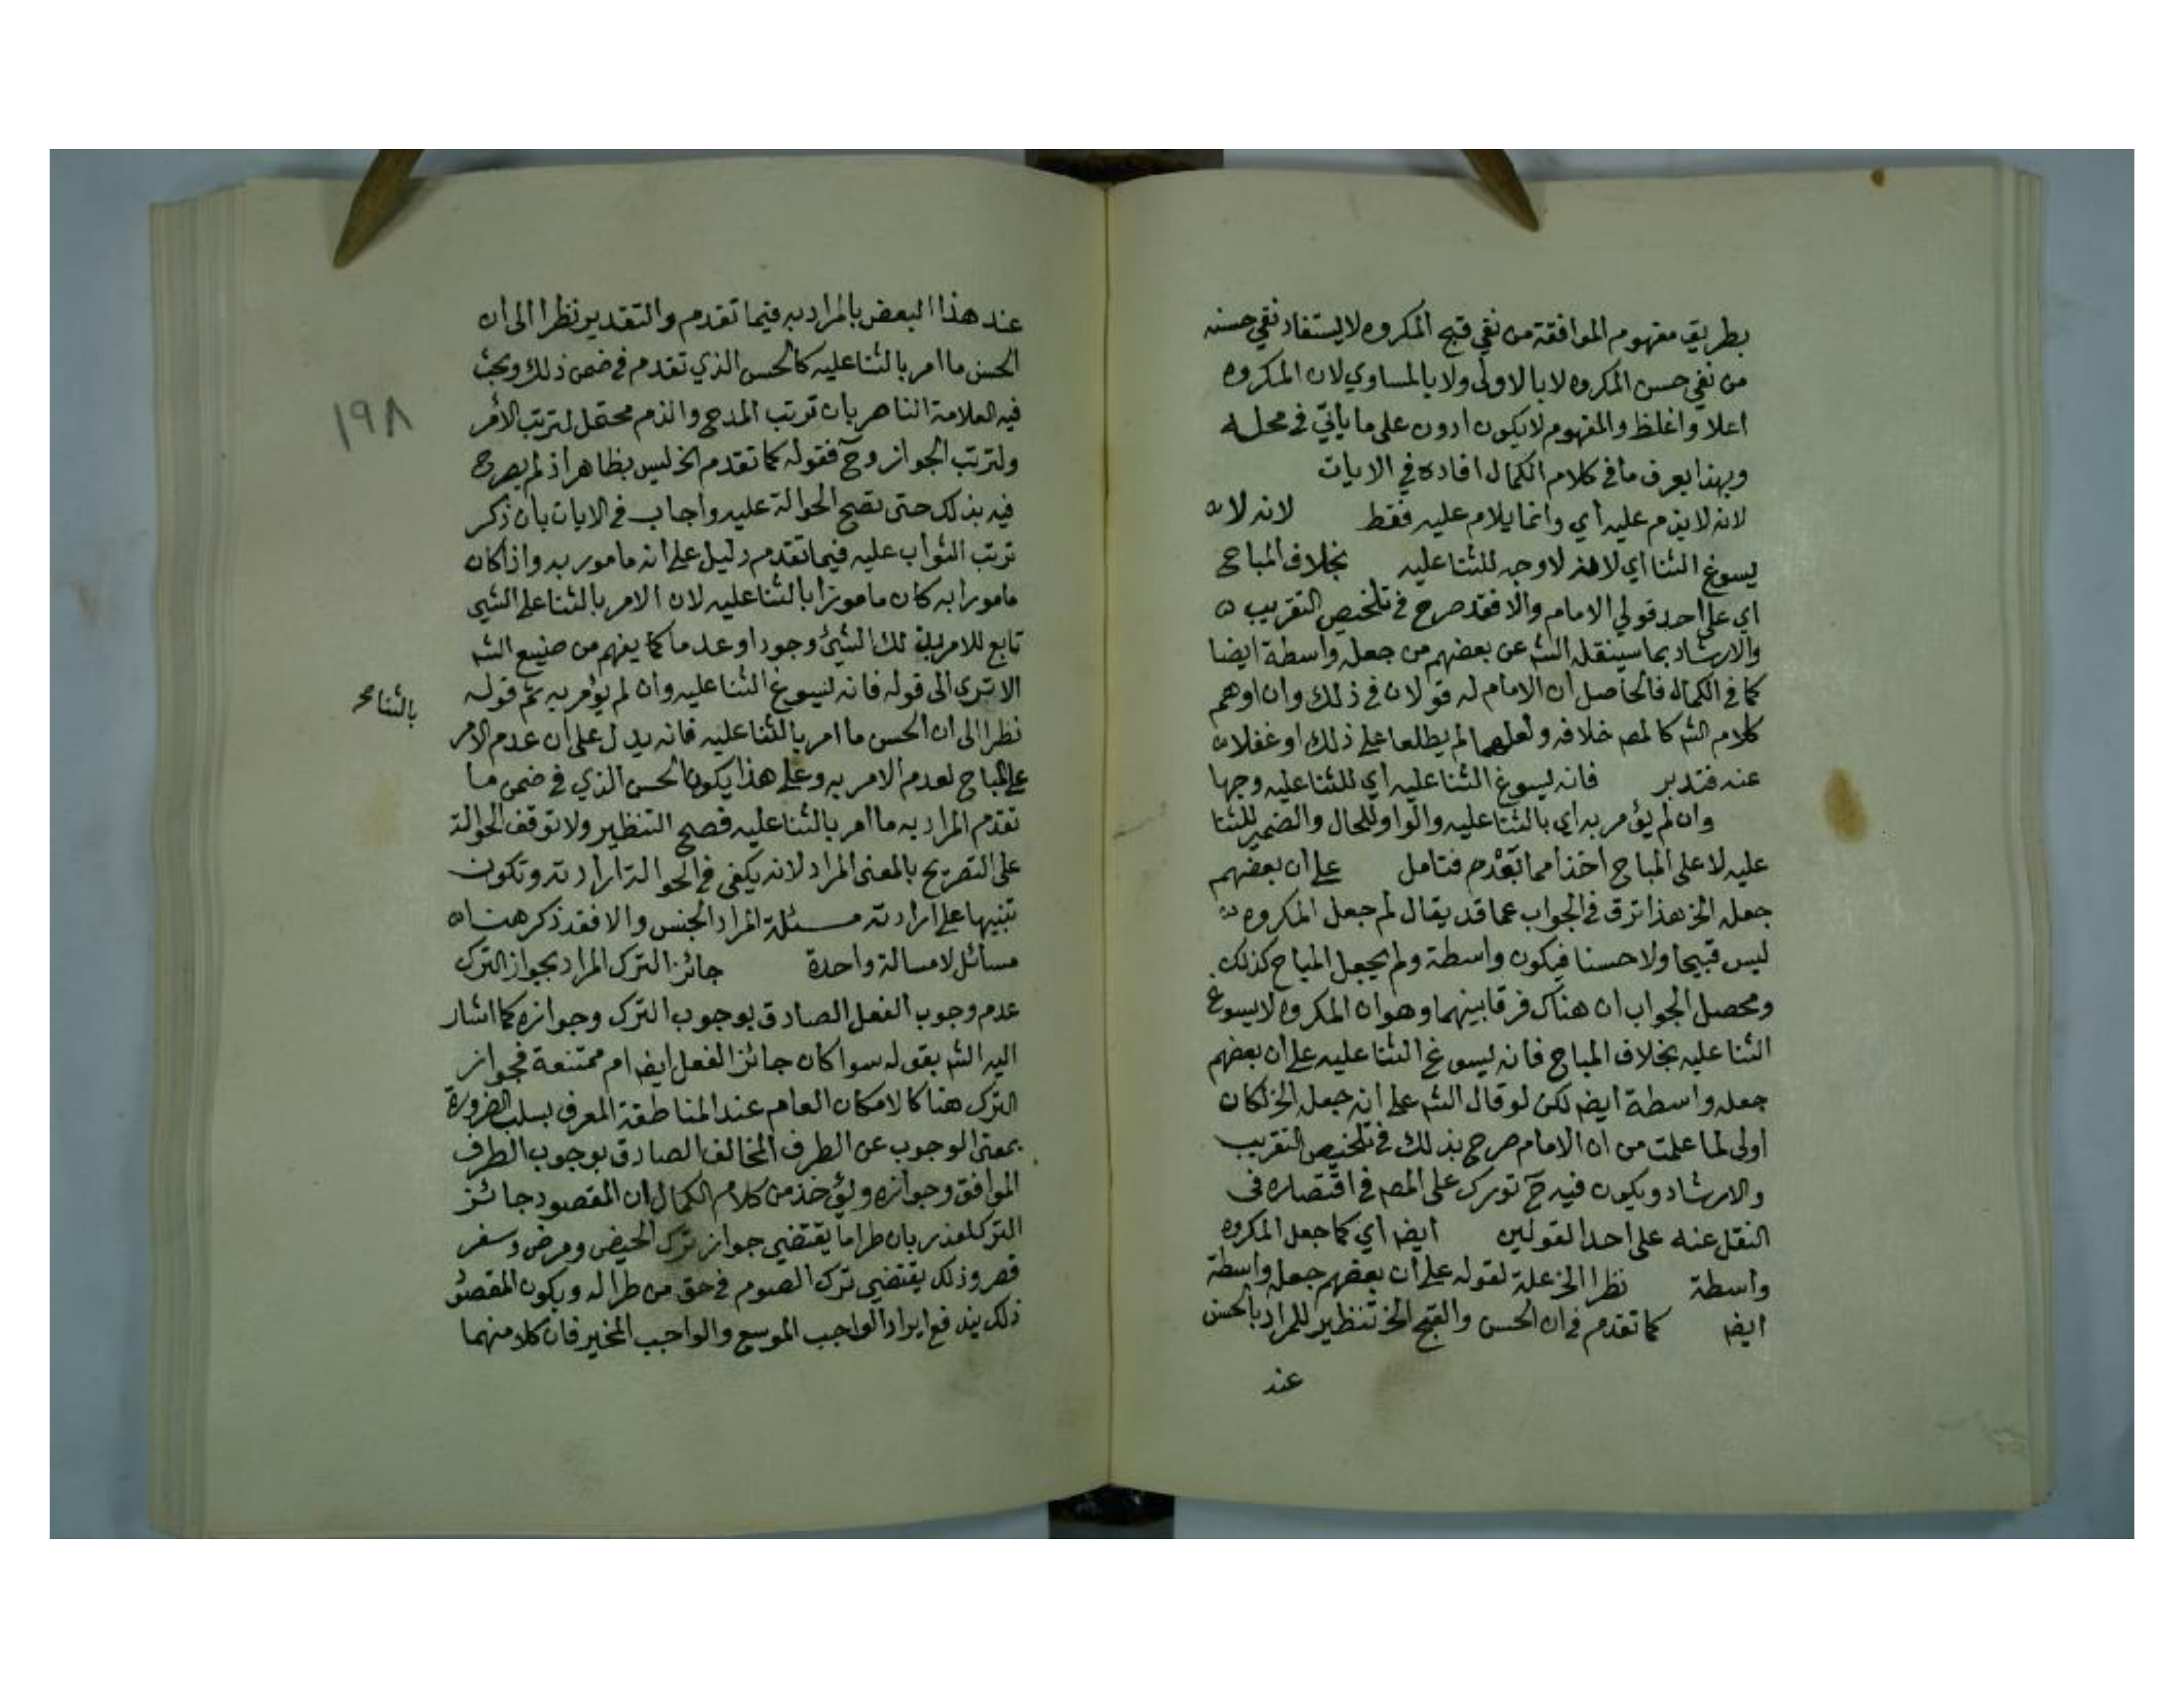 بطريق مفهوم الموافقة من نفي قبح المكروه لا يستفاد نفي حسنه
من نفي حسن المكروه لا بالاولى ولا بالمساوي لان المكروه
اعلا واغلظ والمفهوم لا يكون ادون على ما ياتي في محله
وبهذا يعرف ما في كلام الكمال افاده في الايات
لانه لا يذم عليه اي وانما يلام عليه فقط لانه لا
يسوغ الثنا اي لا وجه للثنا عليه بخلاف المباح
اي على احد قولي الامام والا فقد صرح في تلخيص التقريب
والارشاد بما سينقله الشم عن بعضهم من جعله واسطة ايضا
كما في الكمال فالحاصل ان الامام له قولان في ذلك وان اوهم
كلام الشم كالمصم خلافه ولعلهما لم يطلعا على ذلك او غفلا
عنه فتدبر فانه يسوغ الثنا عليه اي للثنا عليه وجها
وان لم يؤمر به اي بالثنا عليه والواو للحال والضمير للثنا
عليه لا على المباح اخذا مما تقدم فتامل على ان بعضهم
جعله الخ هذا ترق في الجواب عما قد يقال لم جعل المكروه
ليس قبيحا ولا حسنا فيكون واسطة ولم يجعل المباح كذلك
ومحصل الجواب ان هناك فرقا بينهما وهو ان المكروه لا يسوغ
الثنا عليه بخلاف المباح فانه يسوغ الثنا عليه على ان بعضهم
جعله واسطة ايضم لكن لو قال الشم على انه جعله الخ لكان
اولى لما علمت من ان الامام صرح بذلك في تلخيص التقريب
والارشاد ويكون فيه ح تورك على المصم في اقتصاره في
النقل عنه على احد القولين ايضم اي كما جعل المكروه
واسطة نظرا الخ علة لقوله على ان بعضهم جعله واسطة
ايضم كما تقدم في ان الحسن والقبح الخ تنظير للمراد بالحسن
عند
عند هذا البعض بالمراد به فيما تقدم والتقدير نظرا الى ان
الحسن ما امر بالثنا عليه كالحسن الذي تقدم في ضمن ذلك وبحث
١٩٨
فيه العلامة الناصر بان ترتب المدح والذم محتمل لترتب الامر
ولترتب الجواز وح فقوله كما تقدم الخ ليس بظاهر اذ لم يصرح
فيه بذلك حتى تصح الحوالة عليه واجاب في الايات بان ذكر
ترتب الثواب عليه فيما تقدم دليل على انه مامور به واذا كان
مامورا به كان مامورا بالثنا عليه لان الامر بالثنا على الشي
تابع للامر بذلك الشيئ وجودا وعدما كما يفهم من صنيع الشم
الا ترى الى قوله فانه يسوغ الثنا عليه وان لم يؤمر به ثم قوله
نظرا الى ان الحسن ما امر بالثنا عليه فانه يدل على ان عدم الامر
بالثنا صح
على المباح لعدم الامر به وعلى هذا يكون الحسن الذي في ضمن ما
تقدم المراد به ما امر بالثنا عليه فصح التنظير ولا توقف الحوالة
على التصريح بالمعنى المراد لانه يكفي في الحوالة ارادته وتكون
تنبيها على ارادته مسئلة المراد الجنس والا فقد ذكر هنا
مسائل لا مسالة واحدة جائز الترك المراد بجواز الترك
عدم وجوب الفعل الصادق بوجوب الترك وجوازه كما اشار
اليه الشم بقوله سوا كان جائز الفعل ايضم ام ممتنعة فجواز
الترك هنا كالامكان العام عند المناطقة المعرف بسلب الضرورة
بمعنى الوجوب عن الطرف المخالف الصادق بوجوب الطرف
الموافق وجوازه ويؤخذ من كلام الكمال ان المقصود جائز
الترك لعذر بان طرا ما يقتضي جواز ترك الحيض ومرض وسفر
قصر وذلك يقتضي ترك الصوم في حق من طرا له ويكون المقصود
ذلك يندفع ايراد الواجب الموسع والواجب المخير فان كلا منهما